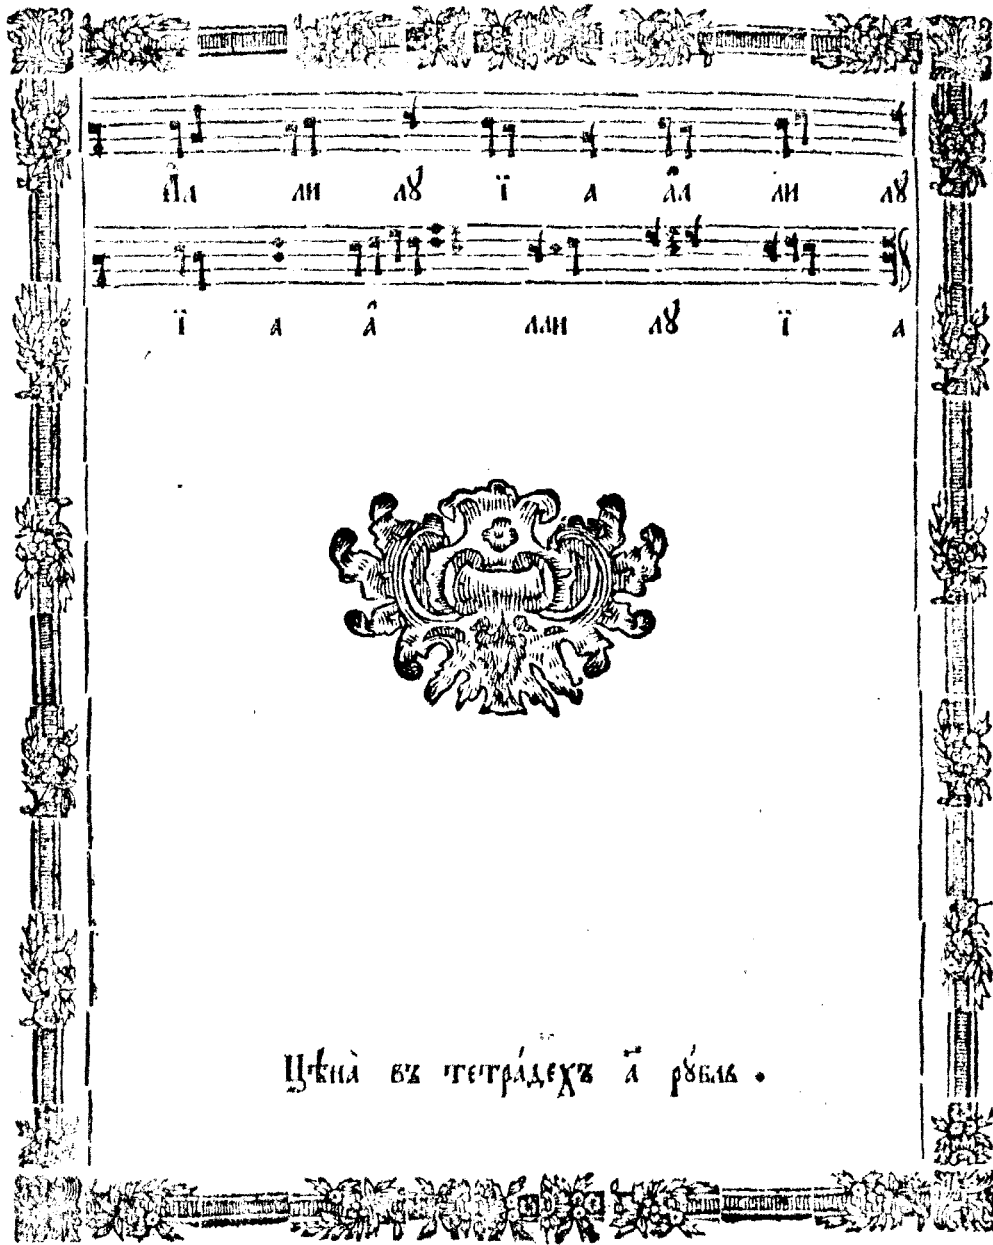 А҆л ли лꙋ́ ї а а҆л ли лꙋ́
ї а а҆ лли лꙋ́ ї а
Цѣна̀ въ тетра́дехъ а҃ рꙋ́бль .